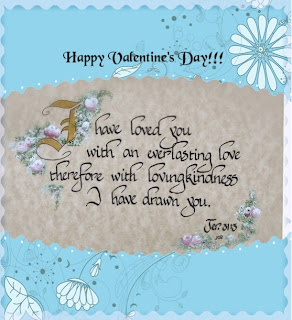 Happy Valentine's Day!!!
I have loved you
with an everlasting love
therefore with lovingkindness
I have drawn you.
Jer. 31:3